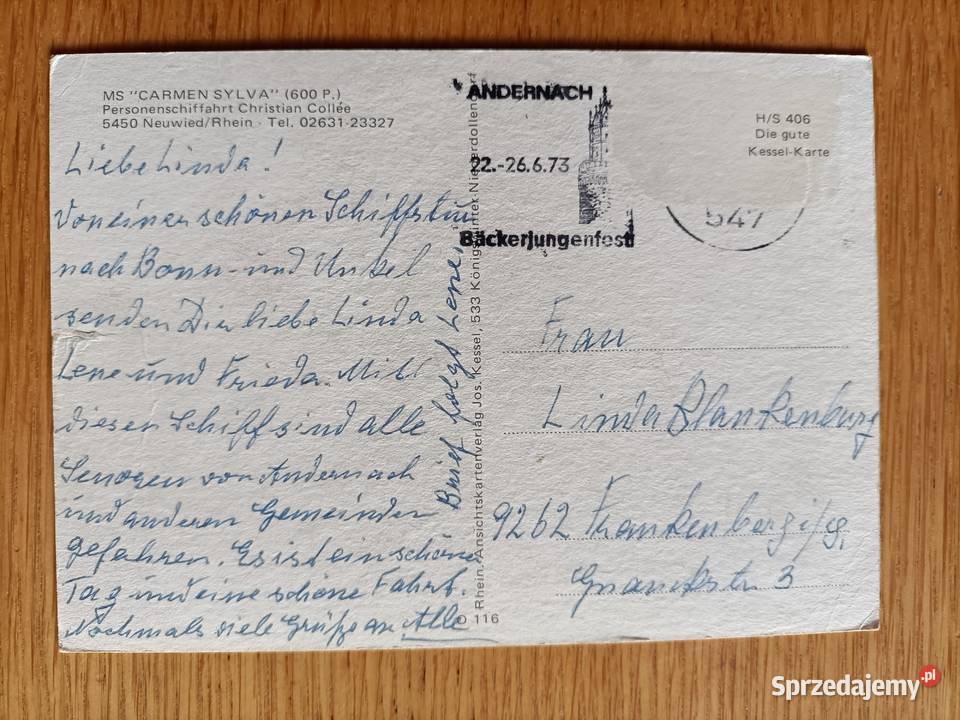 MS "CARMEN SYLVA" (600 P.)
Personenschiffahrt Christian Collée
5450 Neuwied/Rhein · Tel. 02631-23327
Liebe Linda!
Von einer schönen Schiffstur
nach Bonn und Unkel
senden Dir liebe Linda
Lene und Frieda. Mit
diesen Schiff sind alle
von Andernach
und anderen Gemeinden
gefahren. Es ist ein schöner
Tag und eine schöne Fahrt.
Nochmals viele Grüße an Alle
Brief folgt Lene.
Rhein. Ansichtskartenverlag Jos. Kessel, 533 Königswinter-Niederdollendorf
O 116
ANDERNACH
22.-26.6.73
Bäckerjungenfest
547
H/S 406
Die gute
Kessel-Karte
Frau
Linda Blankenburg
9262 Frankenberg i/S.
3
Sprzedajemy.pl